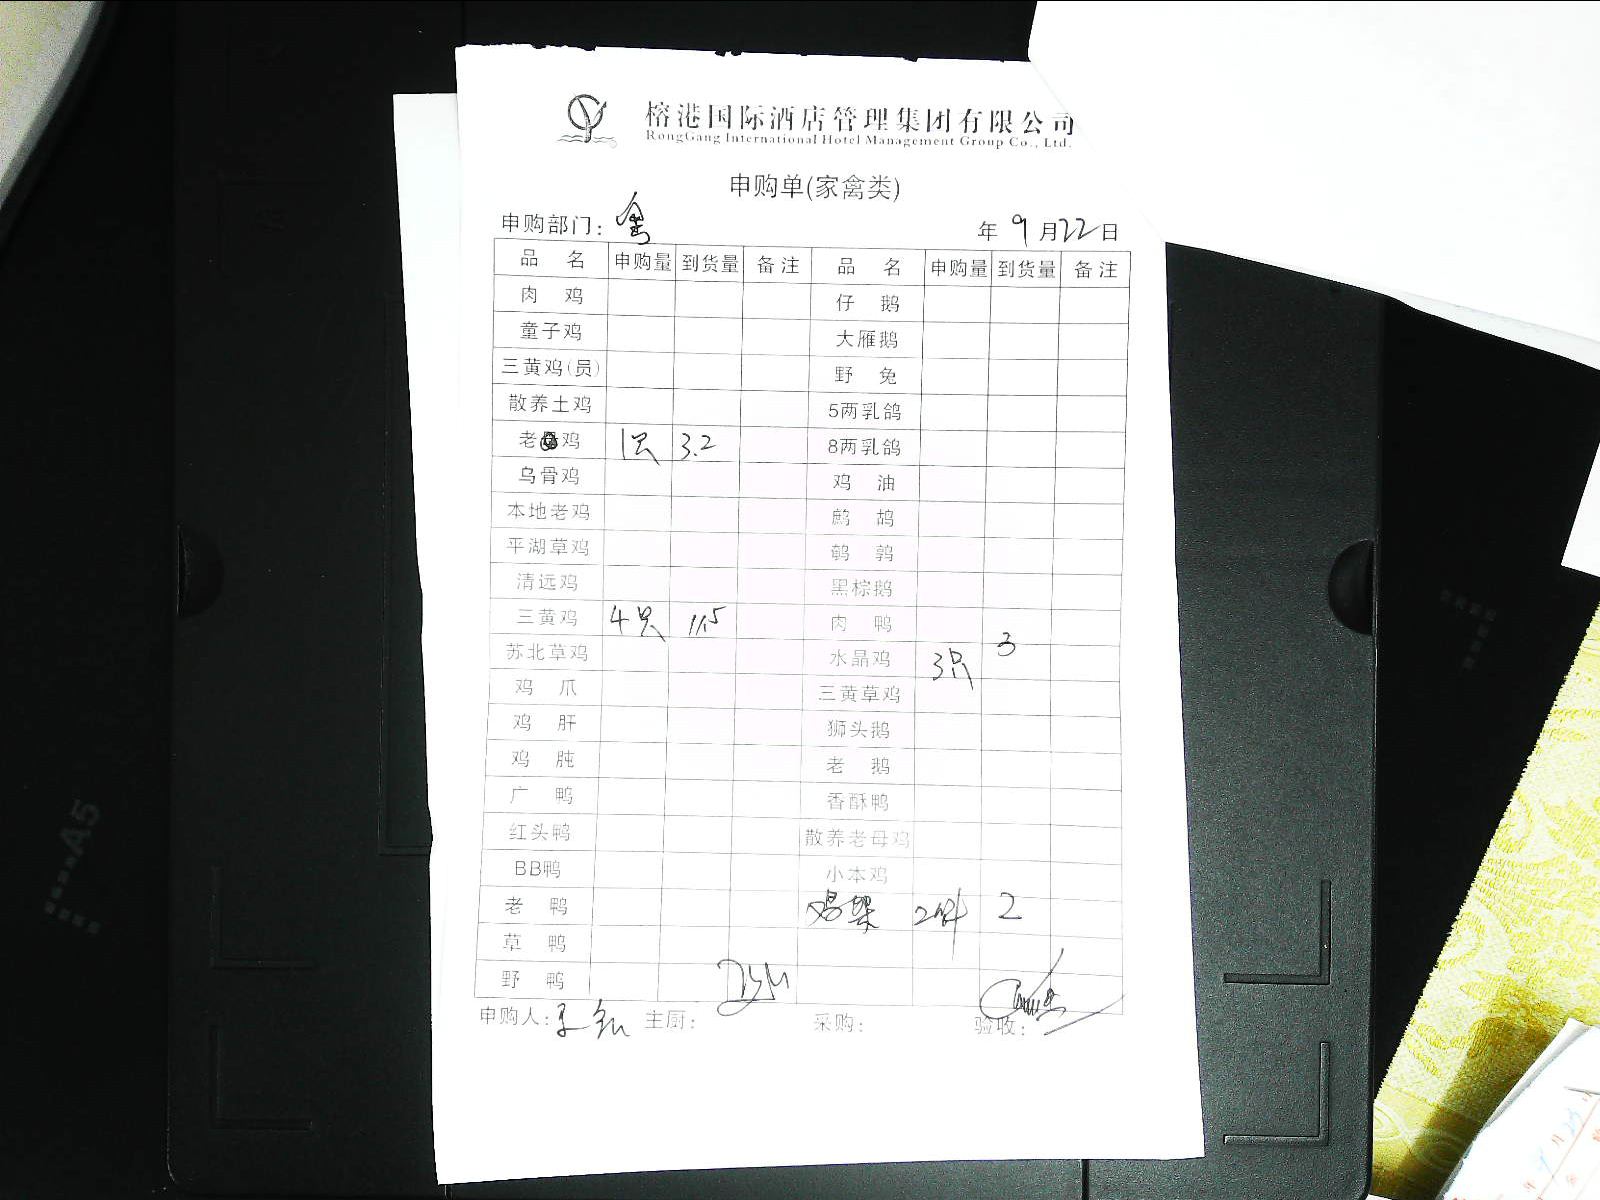 榕港国际酒店管理集团有限公司
RongGang International Hotel Management Group Co., Ltd.
申购单(家禽类)
申购部门: 年 9 月 22 日
品 名 申购量 到货量 备注 品 名 申购量 到货量 备注
肉 鸡 仔 鹅
童子鸡 大雁鹅
三黄鸡(员) 野 兔
散养土鸡 5两乳鸽
老鸡 1只 3.2 8两乳鸽
乌骨鸡 鸡 油
本地老鸡 鹧 鸪
平湖草鸡 鹌 鹑
清远鸡 黑棕鹅
三黄鸡 4只 11.5 肉 鸭
苏北草鸡 水晶鸡 3只 3
鸡 爪 三黄草鸡
鸡 肝 狮头鹅
鸡 肫 老 鹅
广 鸭 香酥鸭
红头鸭 散养老母鸡
BB鸭 小本鸡
老 鸭 鸡架 2斤 2
草 鸭
野 鸭
申购人: 主厨: 采购: 验收:
A5